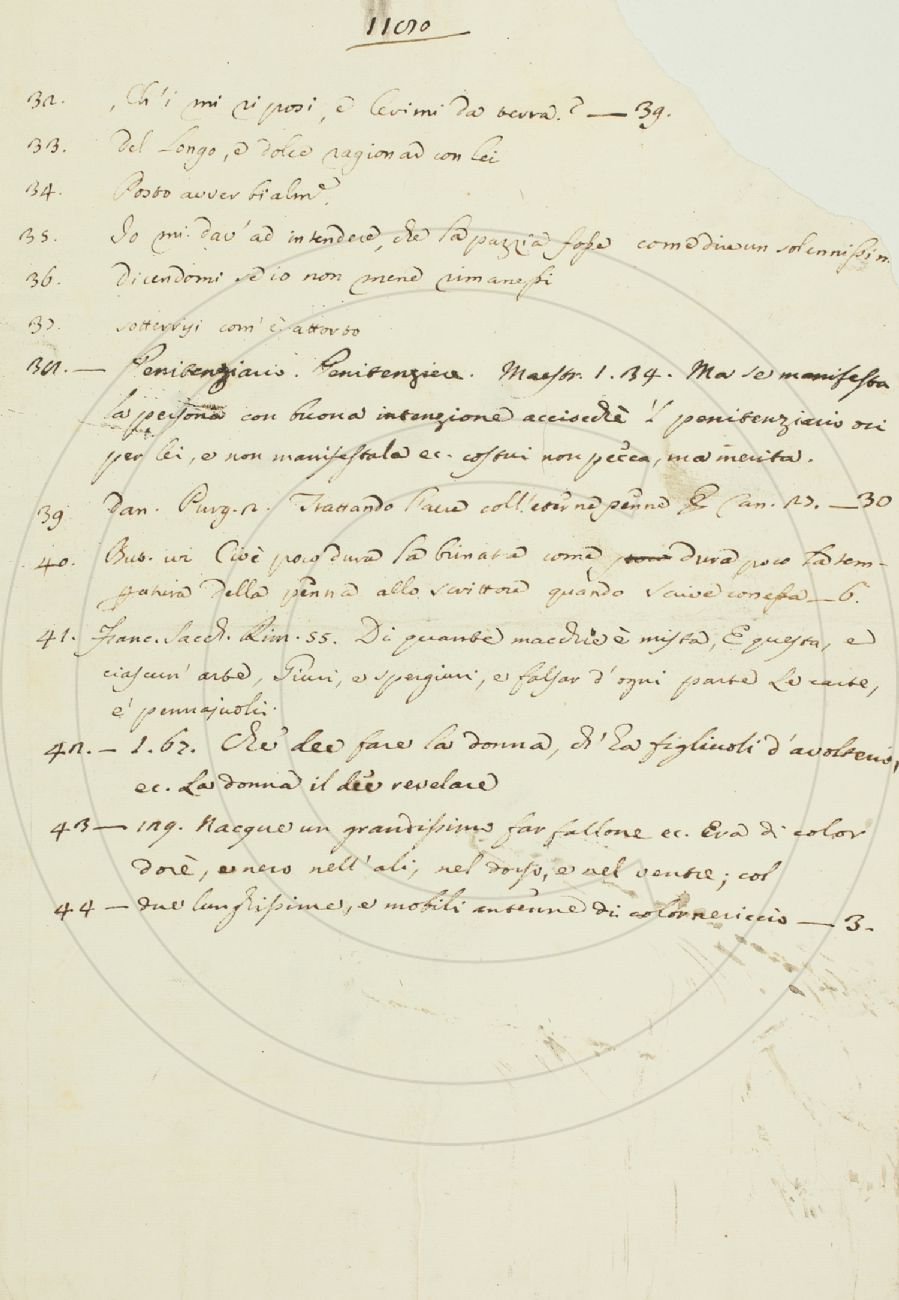 32. Ch'i mi riposi, e levimi da terra. — 39.
33. Del Longo, e dolce ragionar con lei
34. Posto avverbialm.e
35. Io mi dav' ad intendere, che la pazzia fosse come dire un solennissim
36. Dicendomi se io non mene rimanessi
37. sotterrisi com' è attorto
38. — Penitenziario. Penitenziere. Maestr. 1. 34. Ma se manifesta
la persona con buona intenzione acciocchè 'l penitenziario ori
per lei, e non manifestala ec. costui non pecca, ma merita.
39 Dan. Purg. 2. Trattando l'aere coll' eterne penne E Can. 27. — 30
40. But. ivi Cioè poco dura la brinata come, dura poco la tem-
peratura della penna allo scrittore quando scrive con essa — 6.
41. Franc. Sacch. Rim. 55. Di quante macchie è mista, E questa, e
ciascun' arte, Giuri, e spergiuri, e falsar d' ogni parte Le carte,
e' pennajuoli.
42. — 1. 67. Che dee fare la donna, ch' ha figliuoli d'avolterio,
ec. La donna il dee revelare
43 — 129. Nacque un grandissimo farfallone ec. Era di color
dorè, e nero nell' ali, nel dosso, e nel ventre; col
44 — due lunghissime, e mobili antenne di color nericcio — 3.